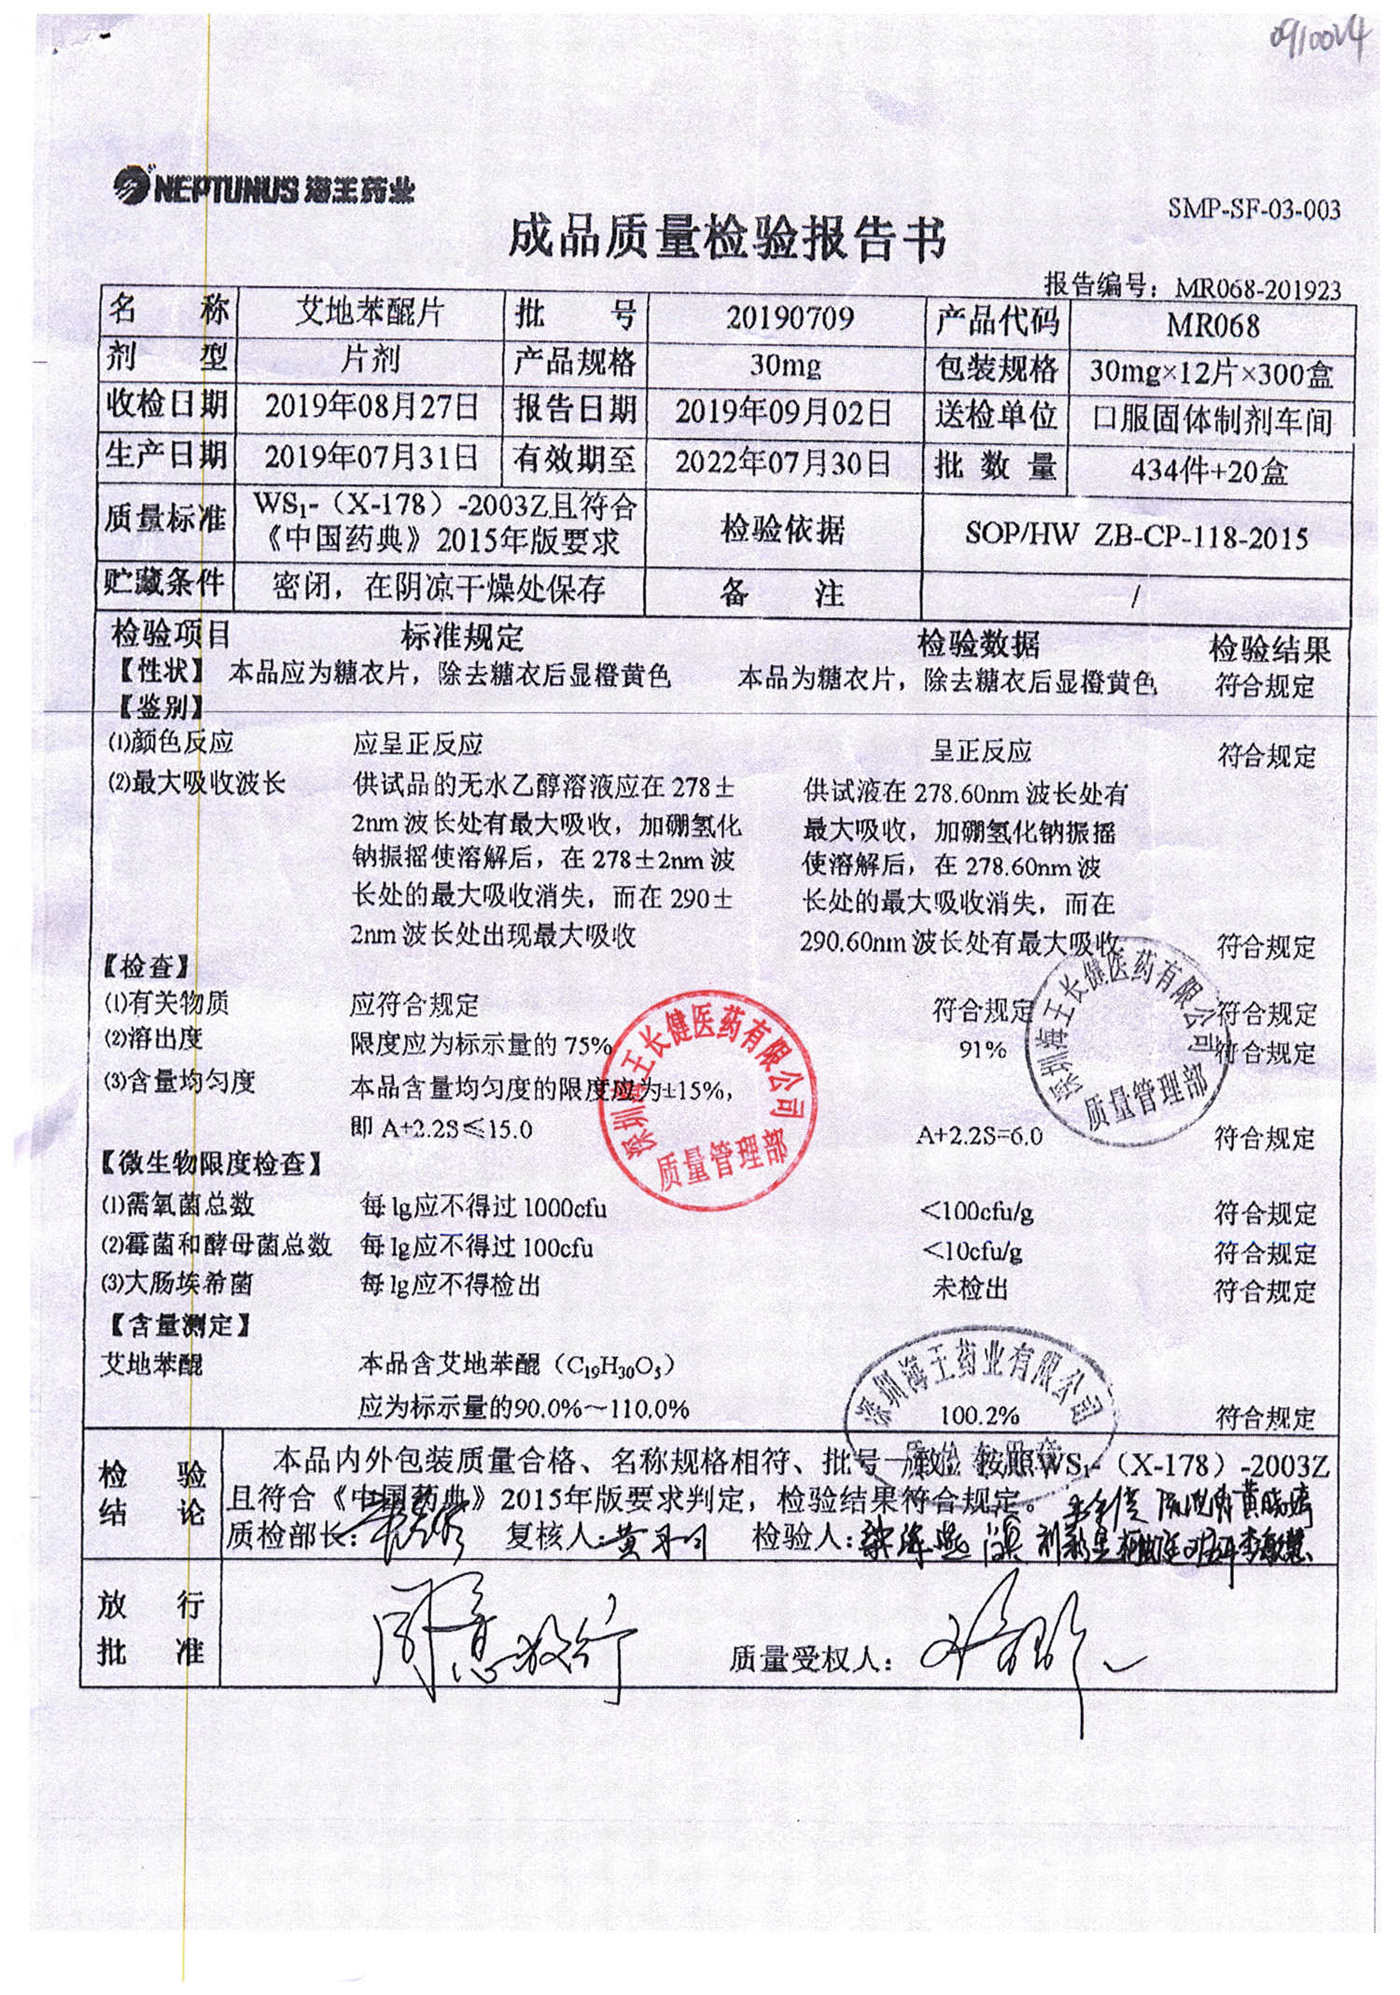 0910024
NEPTUNUS 海王药业
SMP-SF-03-003
成品质量检验报告书
报告编号：MR068-201923
名 称 艾地苯醌片 批 号 20190709 产品代码 MR068
剂 型 片剂 产品规格 30mg 包装规格 30mg×12片×300盒
收检日期 2019年08月27日 报告日期 2019年09月02日 送检单位 口服固体制剂车间
生产日期 2019年07月31日 有效期至 2022年07月30日 批 数 量 434件+20盒
质量标准 WS₁-（X-178）-2003Z且符合《中国药典》2015年版要求 检验依据 SOP/HW ZB-CP-118-2015
贮藏条件 密闭，在阴凉干燥处保存 备 注 /
检验项目 标准规定 检验数据 检验结果
【性状】 本品应为糖衣片，除去糖衣后显橙黄色 本品为糖衣片，除去糖衣后显橙黄色 符合规定
【鉴别】
⑴颜色反应 应呈正反应 呈正反应 符合规定
⑵最大吸收波长 供试品的无水乙醇溶液应在 278± 供试液在 278.60nm 波长处有
2nm 波长处有最大吸收，加硼氢化 最大吸收，加硼氢化钠振摇
钠振摇使溶解后，在 278±2nm 波 使溶解后，在 278.60nm 波
长处的最大吸收消失，而在 290± 长处的最大吸收消失，而在
2nm 波长处出现最大吸收 290.60nm 波长处有最大吸收 符合规定
【检查】
⑴有关物质 应符合规定 符合规定 符合规定
⑵溶出度 限度应为标示量的 75% 91% 符合规定
⑶含量均匀度 本品含量均匀度的限度应为±15%，
即 A+2.2S≤15.0 A+2.2S=6.0 符合规定
深圳海王长健医药有限公司
质量管理部
深圳海王长健医药有限公司
质量管理部
【微生物限度检查】
⑴需氧菌总数 每1g应不得过1000cfu <100cfu/g 符合规定
⑵霉菌和酵母菌总数 每1g应不得过100cfu <10cfu/g 符合规定
⑶大肠埃希菌 每1g应不得检出 未检出 符合规定
【含量测定】
艾地苯醌 本品含艾地苯醌（C₁₉H₃₀O₅）
应为标示量的90.0%～110.0% 100.2% 符合规定
深圳海王药业有限公司
检 验 结 论 本品内外包装质量合格、名称规格相符、批号一致。按照WS₁-（X-178）-2003Z
且符合《中国药典》2015年版要求判定，检验结果符合规定。
质检部长： 复核人： 检验人：
放 行 批 准 同意放行 质量受权人：